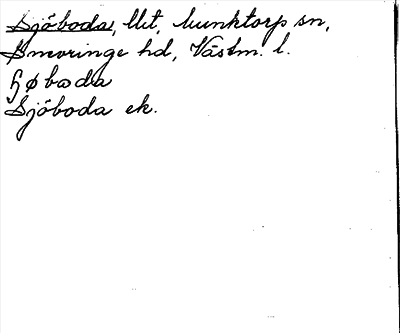 Sjöboda, llit, Munktorp sn,
Snevringe hd, Västm. l.
ɧøbωda
Sjöboda ek.